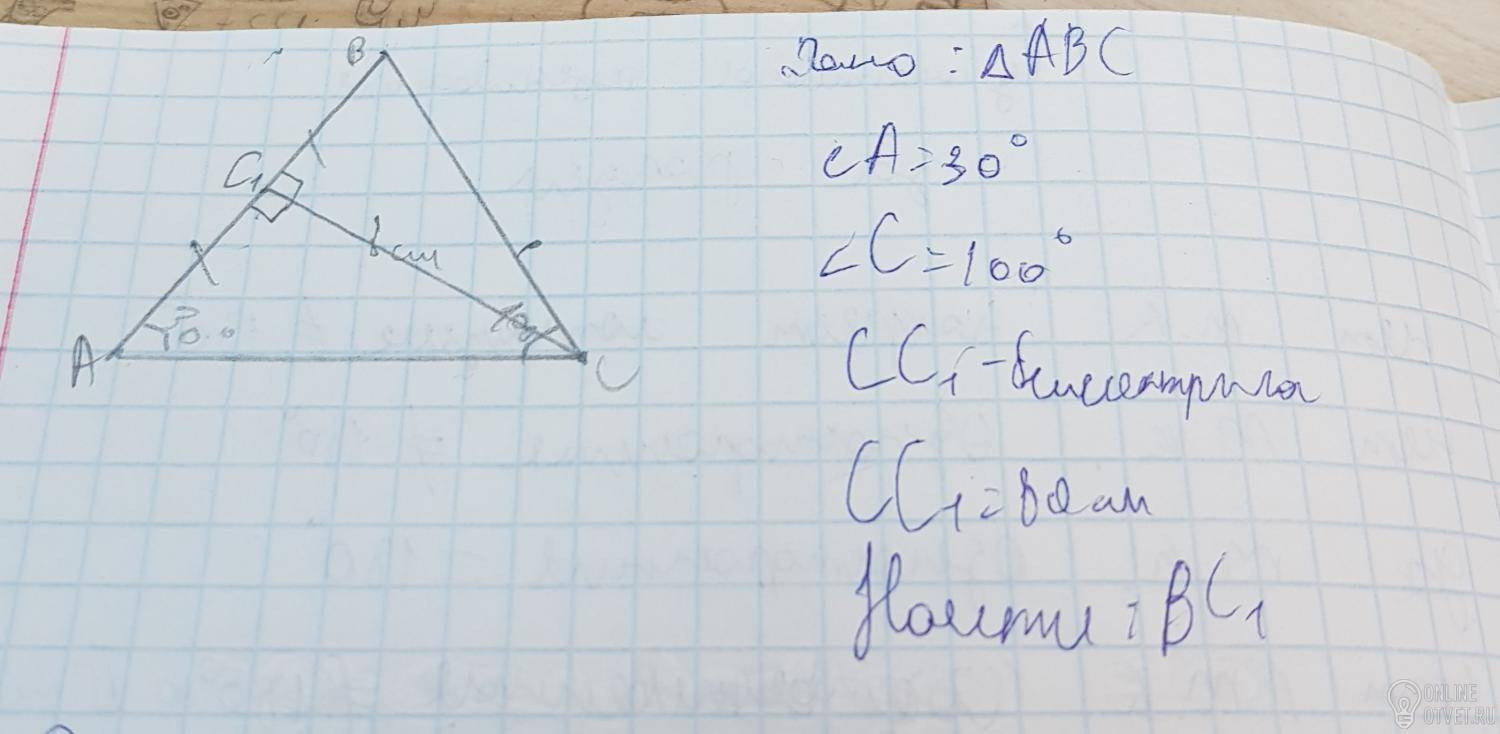 B
C₁
8 см
30°
A
C
Дано : △ABC
∠A=30°
∠C=100°
CC₁-биссектриса
CC₁=8см
Найти : BC₁
ONLINE
OTVET.RU